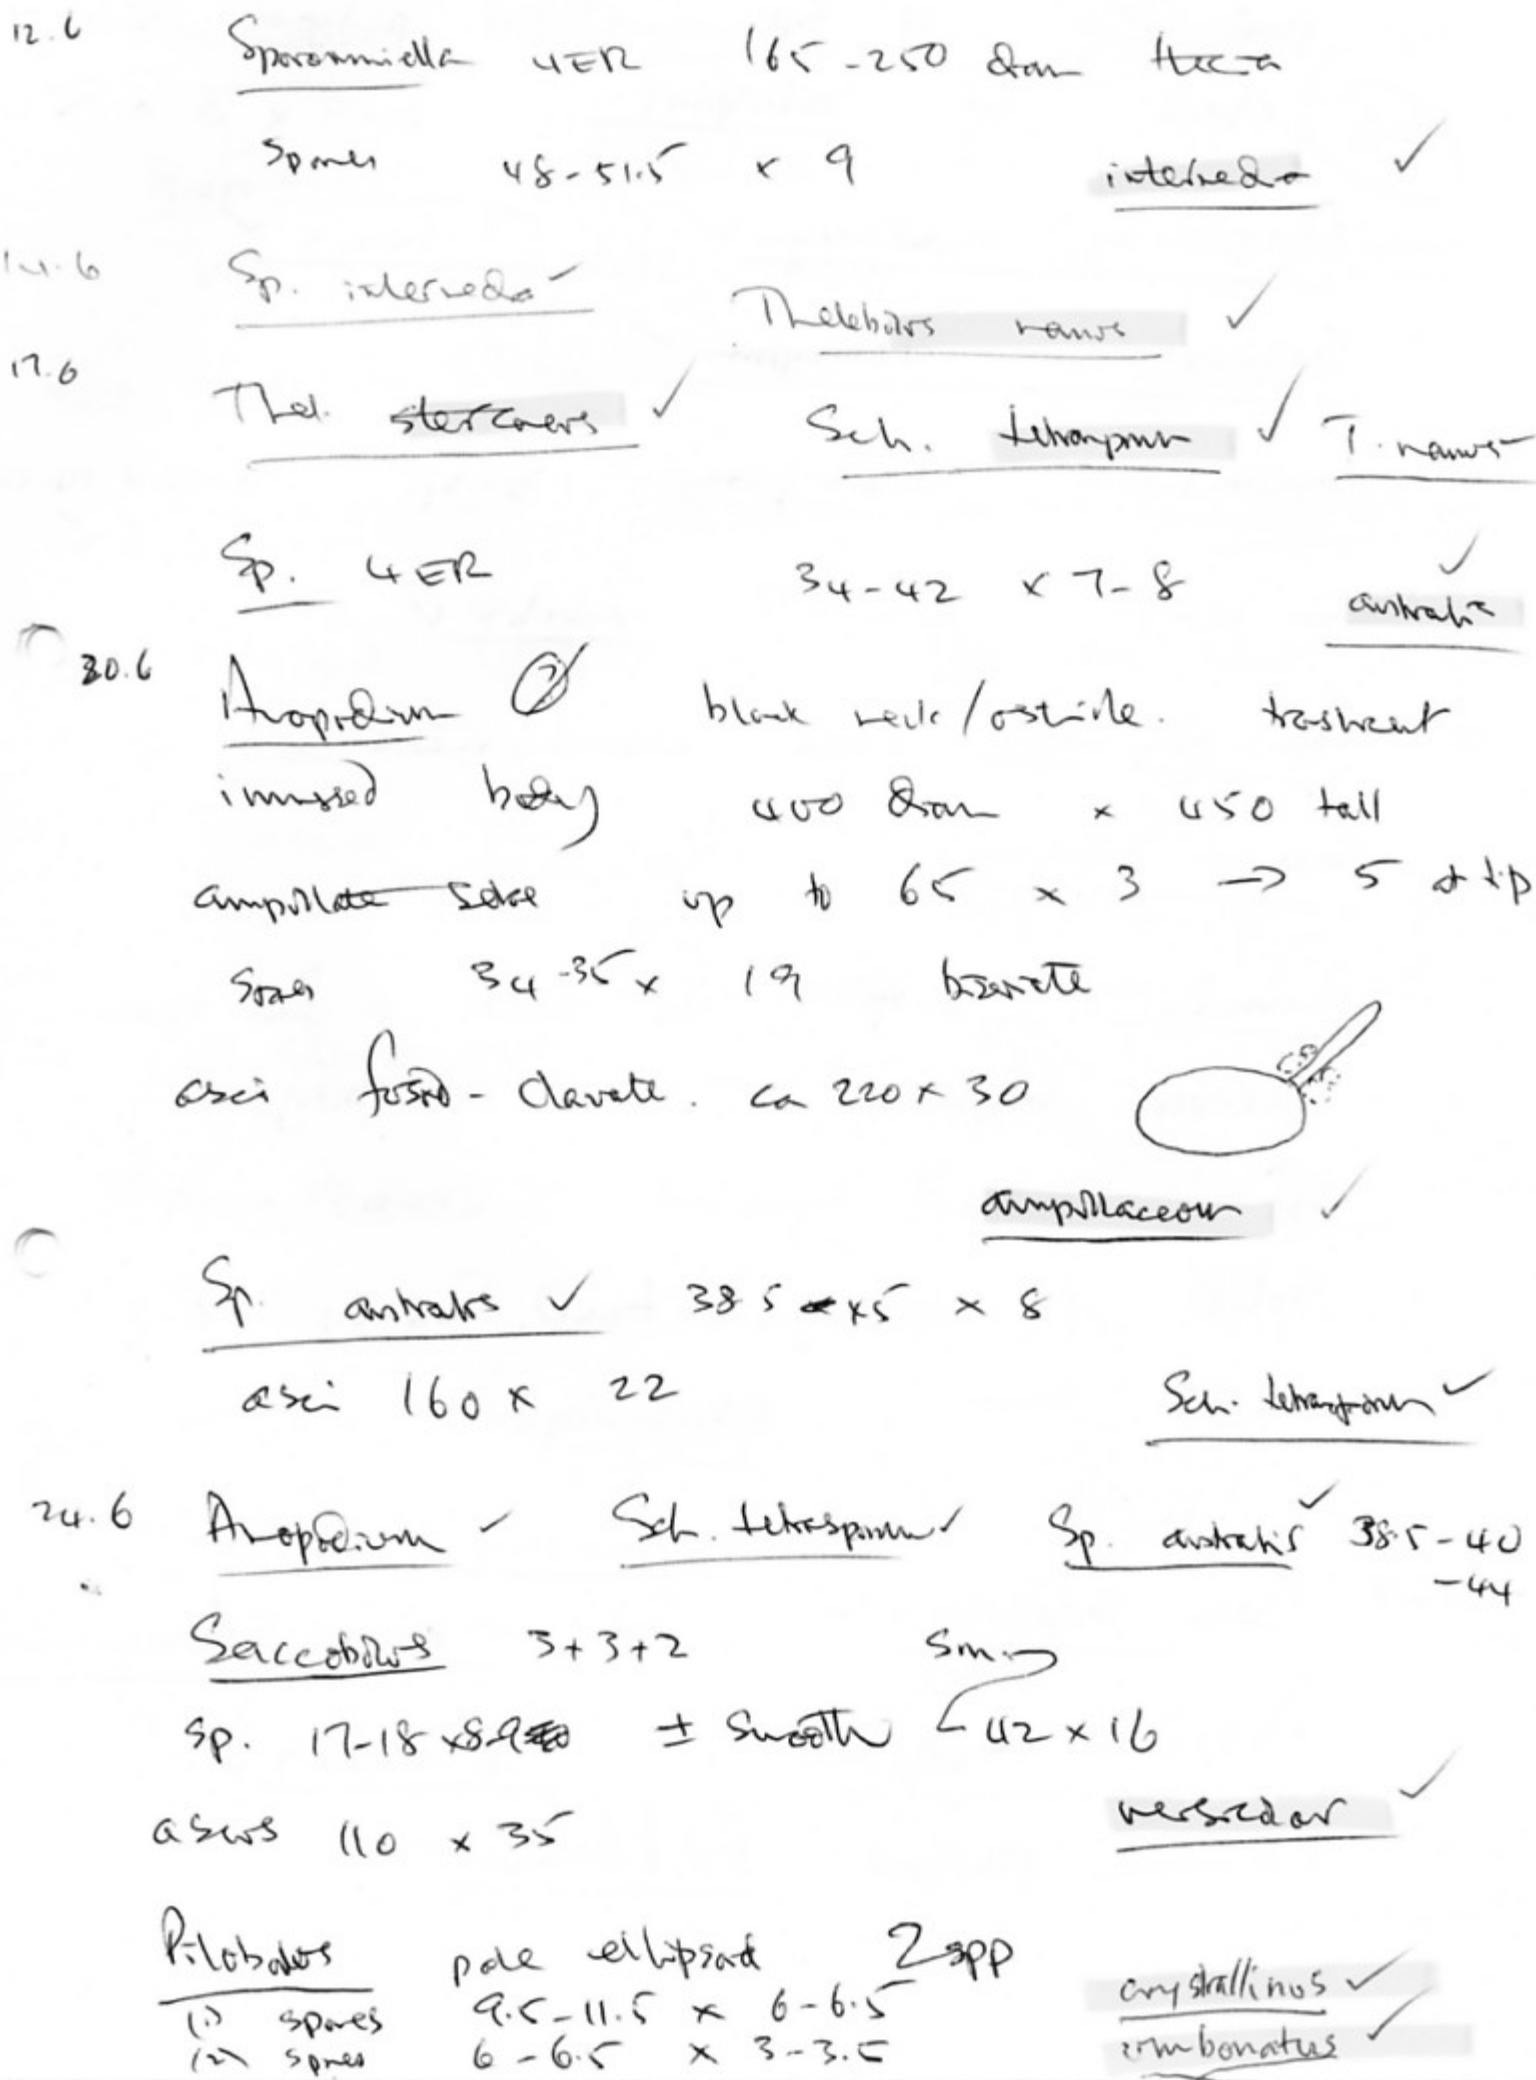 12.6 Sporormiella 4ER 165-250 diam theca
Spores 48-51.5 x 9 intermedia ✓
14.6 Sp. intermedia ✓ Thelebolus nanus ✓
17.6 Thel. stercoreus ✓ Sch. tetrasporum ✓ T. nanus
Sp. 4ER 34-42 x 7-8 australis ✓
20.6 Arnopodium black neck/ostiole. translucent
immersed body 400 diam x 450 tall
ampullate setae up to 65 x 3 → 5 at tip
Spores 34-35 x 19 biseriate
asci fusoid-clavate. ca 220 x 30
ampullaceum ✓
Sp. australis ✓ 38.5-45 x 8
asci 160 x 22 Sch. tetrasporum ✓
24.6 Arnopodium ✓ Sch. tetrasporum ✓ Sp. australis ✓ 38.5-40
-44
Saccobolus 3+3+2
sp. 17-18 x 8-9 ± smooth 42 x 16
ascus 110 x 35 versicolor ✓
Pilobolus pale ellipsoid 2 spp
(1) spores 9.5-11.5 x 6-6.5 crystallinus ✓
(2) spores 6-6.5 x 3-3.5 umbonatus ✓